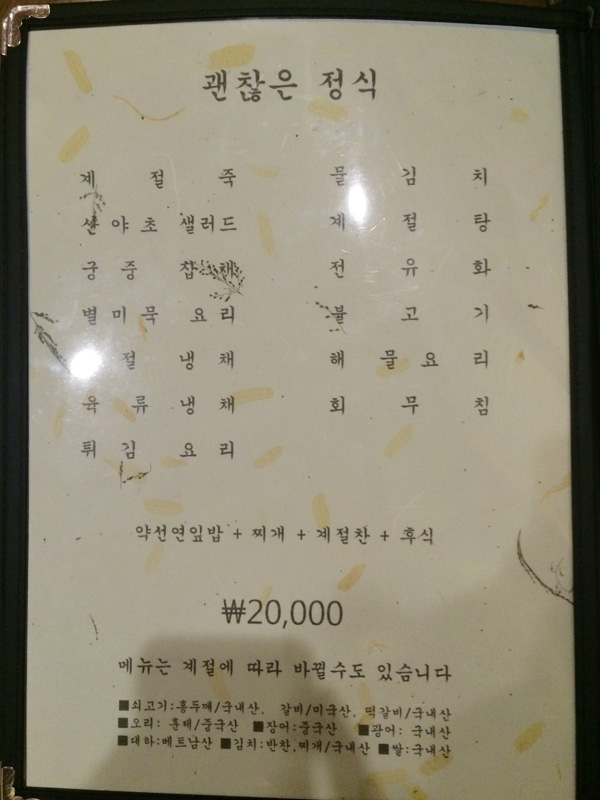 괜찮은 정식
계절죽 물김치
산야초 샐러드 계절탕
궁중 잡채 전유화
별미묵 요리 불고기
절냉채 해물요리
육류냉채 회무침
튀김 요리
약선연잎밥 + 찌개 + 계절찬 + 후식
₩20,000
메뉴는 계절에 따라 바뀔수도 있습니다
■쇠고기:홍두깨/국내산, 갈비/미국산, 떡갈비/국내산
■오리: 훈제/중국산 ■장어:중국산 ■광어: 국내산
■대하:베트남산 ■김치:반찬,찌개/국내산 ■쌀:국내산